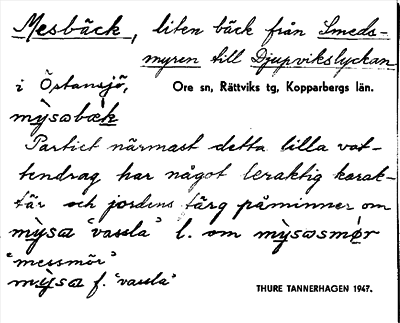 Mesbäck, liten bäck från Smeds-
myren till Djupvikslyckan
i Östansjö, Ore sn, Rättviks tg, Kopparbergs län.
mỳsɷbæ̀k
Partiet närmast detta lilla vat-
tendrag har något leraktig karak-
tär och jordens färg påminner om
mỳsɷ "vassla" l. om mỳsɷsmǿr
"messmör"
mỳsɷ f. "vassla"
THURE TANNERHAGEN 1947.